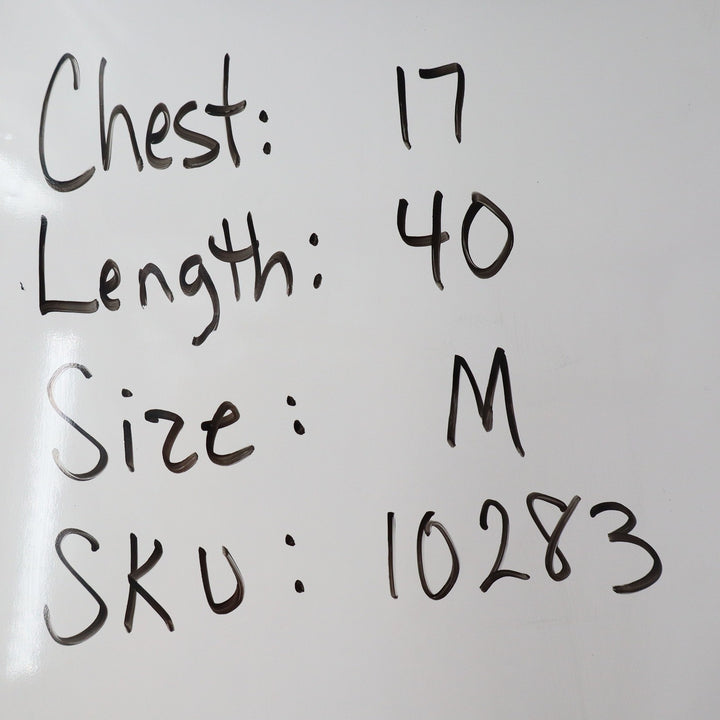 Chest: 17
Length: 40
Size: M
SKU: 10283